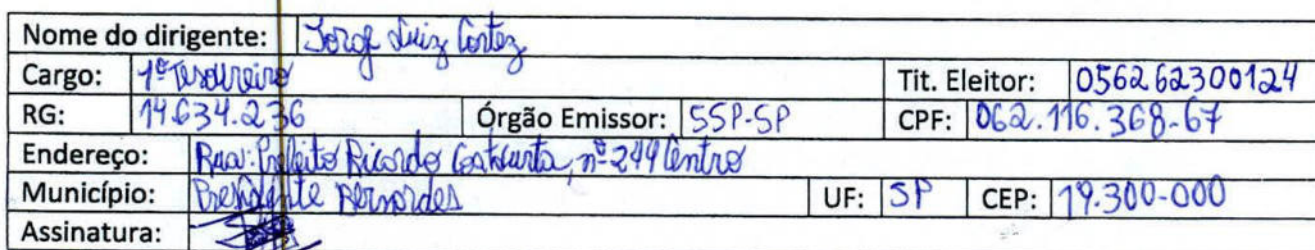 Nome do dirigente: Jorge Luiz Cortez
Cargo: 1º Tesoureiro Tit. Eleitor: 056262300124
RG: 14.634.236 Órgão Emissor: SSP-SP CPF: 062.116.368-67
Endereço: Rua: Prefeito Ricardo nº 249 Centro
Município: Presidente Bernardes UF: SP CEP: 19.300-000
Assinatura: